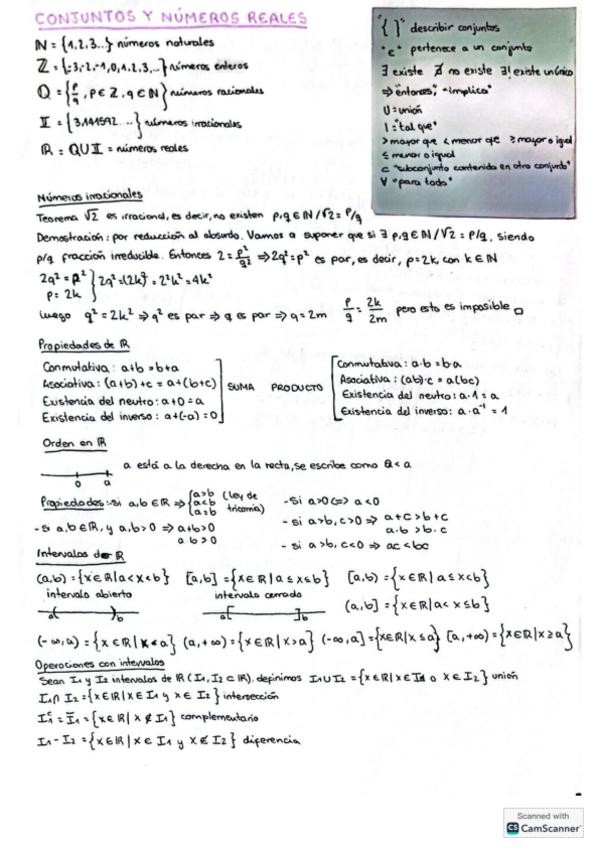 CONJUNTOS Y NÚMEROS REALES
ℕ = {1,2,3...} números naturales
ℤ = {-3,-2,-1,0,1,2,3,...} números enteros
ℚ = {p/q, p∈ℤ, q∈ℕ} números racionales
𝕀 = {3.141592...} números irracionales
ℝ = ℚ∪𝕀 = números reales
"{ }" describir conjuntos
"∈" pertenece a un conjunto
∃ existe ∄ no existe ∃! existe un único
⇒ "entonces", "implica"
∪ = unión
| = "tal que"
> mayor que < menor que ≥ mayor o igual
≤ menor o igual
⊂ "subconjunto contenido en otro conjunto"
∀ "para todo"
Números irracionales
Teorema √2 es irracional, es decir, no existen p,q ∈ ℕ / √2 = p/q
Demostración: por reducción al absurdo. Vamos a suponer que si ∃ p,q ∈ ℕ / √2 = p/q, siendo
p/q fracción irreducible. Entonces 2 = p²/q² ⇒ 2q² = p² es par, es decir, p = 2k, con k ∈ ℕ
2q² = p² } 2q² = (2k)² = 2²k² = 4k²
p = 2k
Luego q² = 2k² ⇒ q² es par ⇒ q es par ⇒ q = 2m p/q = 2k/2m pero esto es imposible □
Propiedades de ℝ
Conmutativa: a+b = b+a
Asociativa: (a+b)+c = a+(b+c)
Existencia del neutro: a+0 = a
Existencia del inverso: a+(-a) = 0
SUMA PRODUCTO
Conmutativa: a·b = b·a
Asociativa: (ab)·c = a(bc)
Existencia del neutro: a·1 = a
Existencia del inverso: a·a⁻¹ = 1
Orden en ℝ
0 a
a está a la derecha en la recta, se escribe como 0 < a
Propiedades: si a,b ∈ ℝ ⇒ { a>b a<b a=b (Ley de tricomía)
- si a,b ∈ ℝ, y a,b > 0 ⇒ a+b > 0
a·b > 0
- Si a>0 <=> a<0
- si a>b, c>0 ⇒ a+c > b+c
a·b > b·c
- si a>b, c<0 ⇒ ac < bc
Intervalos de ℝ
(a,b) = {x∈ℝ | a<x<b} [a,b] = {x∈ℝ | a≤x≤b} [a,b) = {x∈ℝ | a≤x<b}
intervalo abierto intervalo cerrado
(a,b] = {x∈ℝ | a<x≤b}
a b a b
(-∞,a) = {x∈ℝ | x<a} (a,+∞) = {x∈ℝ | x>a} (-∞,a] = {x∈ℝ | x≤a} [a,+∞) = {x∈ℝ | x≥a}
Operaciones con intervalos
Sean I₁ y I₂ intervalos de ℝ (I₁, I₂ ⊂ ℝ). definimos I₁∪I₂ = {x∈ℝ | x∈I₁ o x∈I₂} unión
I₁∩I₂ = {x∈ℝ | x∈I₁ y x∈I₂} intersección
I₁ᶜ = Ī₁ = {x∈ℝ | x∉I₁} complementario
I₁-I₂ = {x∈ℝ | x∈I₁ y x∉I₂} diferencia
Scanned with
CS CamScanner